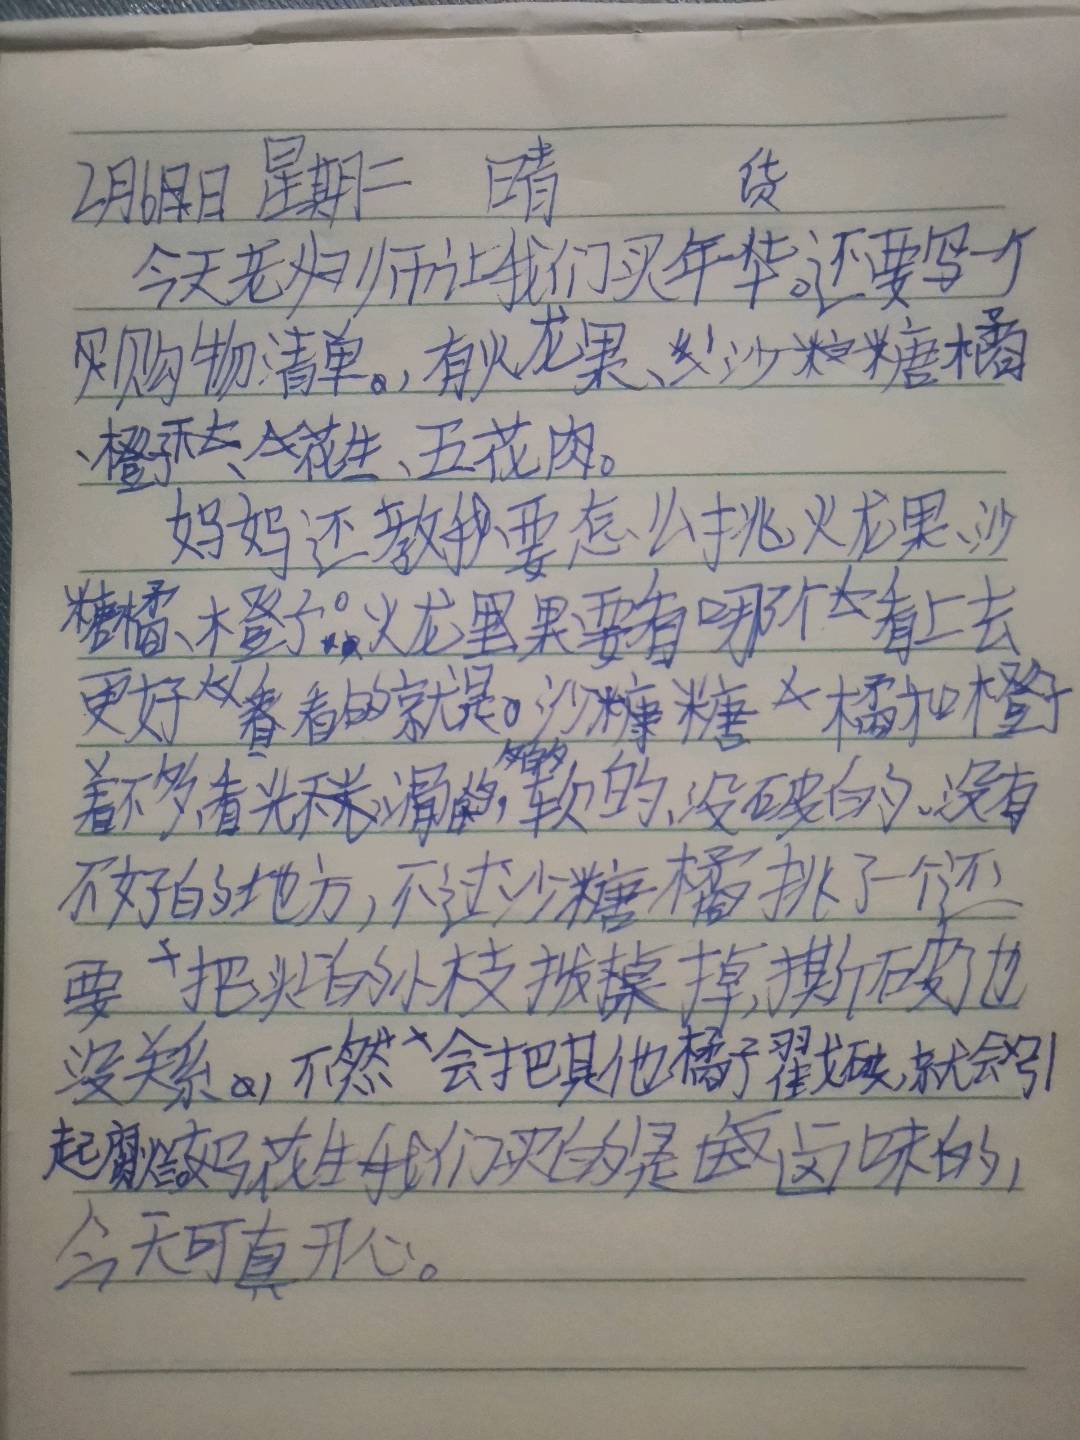 2月6日 星期二 晴 货
今天老师让我们买年华。还要写一个
购物清单。,有火龙果、沙糖橘
、橙子、花生、五花肉。
妈妈还教我要怎么挑火龙果、沙
糖橘、橙子。火龙果要看哪个看上去
更好看的就是。沙糖橘和橙子
着不多,看光滑的,软的、没破的、没有
不好的地方,不过沙糖橘挑了一个还
要把头的小枝拔掉,撕破了也
没关系。,不然会把其他橘子戳破,就会引
起腐烂。花生我们买的是卤味的,
今天可真开心。